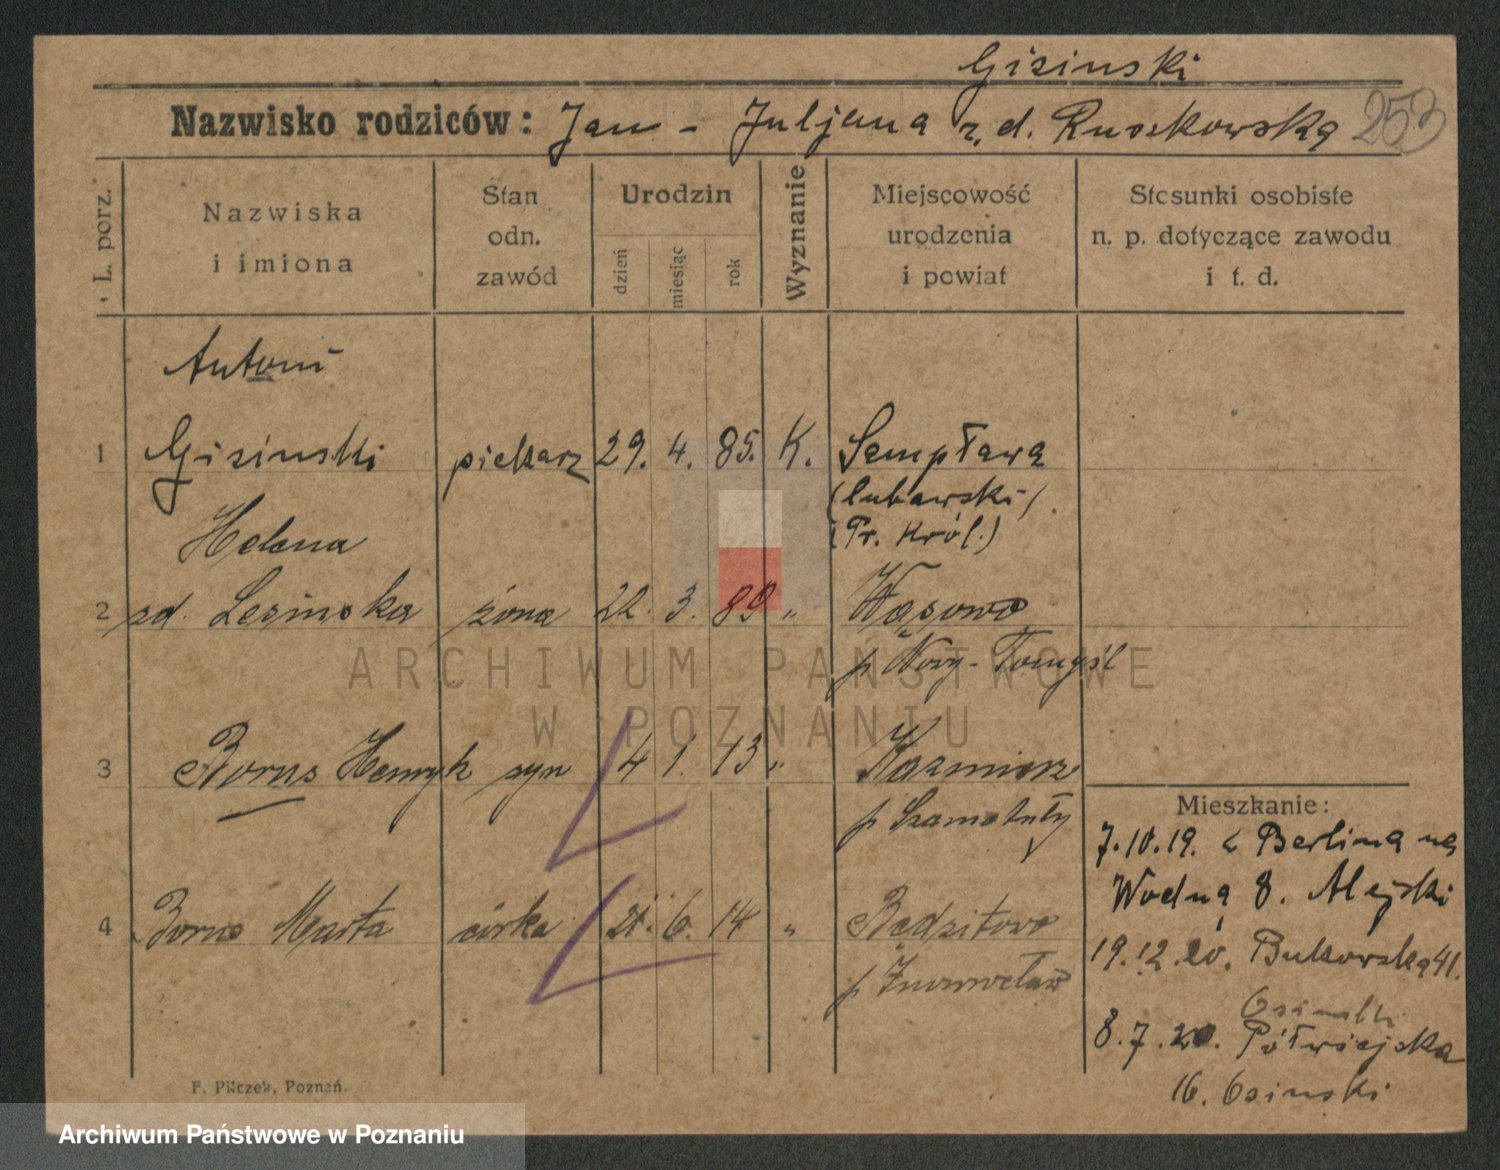 Gisinski
Nazwisko rodziców: Jan - Juljana z, d. Ruszkowska 253
L. porz.
Nazwiska
i imiona
Stan
odn.
zawód
Urodzin
dzień
miesiąc
rok
Wyznanie
Miejscowość
urodzenia
i powiat
Stosunki osobiste
n. p. dotyczące zawodu
i t. d.
Antoni
1 Gisinski piekarz 29. 4. 85. K. Sempława
(lubawski)
(Pr. Król.)
Helena
2 zd. Lesinska żona 22. 3. 89 " Wąsowo
p Nowy-Tomyśl
3 Borus Henryk syn 4 1. 13 " Kazmierz
p Szamotuły
4 Borus Marta córka 21. 6. 14 "
p Inowrocław
Mieszkanie:
7.10.19. z Berlina na
Wodną 8. Alejski
19.12.20. Bukowska 41.
Osinski
8.7. Półwiejska
16. Osinski
F. Pilczek, Poznań.
ARCHIWUM PAŃSTWOWE
W POZNANIU
Archiwum Państwowe w Poznaniu